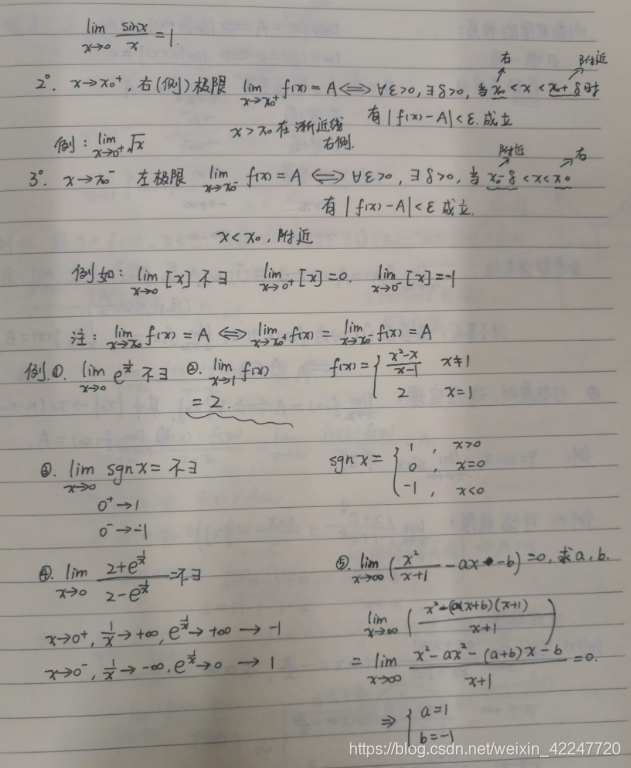 lim x→0 sinx/x = 1.
右 附近
2° x→x₀⁺, 右(侧)极限 lim x→x₀⁺ f(x)=A ⟺ ∀ε>0, ∃δ>0, 当 x₀<x<x₀+δ 时
x>x₀在渐近线右侧. 有|f(x)-A|<ε.成立
例: lim x→0⁺ √x
附近 右
3° x→x₀⁻ 左极限 lim x→x₀⁻ f(x)=A ⟺ ∀ε>0, ∃δ>0, 当 x₀-δ<x<x₀
有|f(x)-A|<ε成立.
x<x₀, 附近
例如: lim x→0 [x] 不∃ lim x→0⁺ [x]=0. lim x→0⁻ [x]=-1
注: lim x→x₀ f(x)=A ⟺ lim x→x₀⁺ f(x) = lim x→x₀⁻ f(x)=A
例.①. lim x→0 e^(1/x) 不∃ ②. lim x→1 f(x) f(x)={ (x²-x)/(x-1) x≠1
=2. 2 x=1
③. lim x→0 sgnx = 不∃ sgnx={ 1, x>0
0, x=0
-1, x<0
0⁺→1
0⁻→-1
④. lim x→0 (2+e^(1/x))/(2-e^(1/x)) =不∃ ⑤. lim x→∞ (x²/(x+1) -ax-b)=0, 求a, b.
lim x→∞ ((x²-(ax+b)(x+1))/(x+1))
x→0⁺, 1/x→+∞, e^(1/x)→+∞ → -1
x→0⁻, 1/x→-∞, e^(1/x)→0 → 1
= lim x→∞ (x²-ax²-(a+b)x-b)/(x+1) =0.
⇒ { a=1
b=-1
https://blog.csdn.net/weixin_42247720